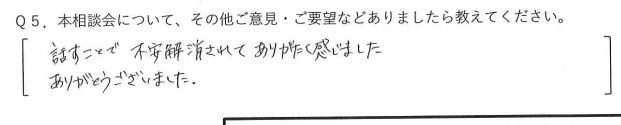 Q5．本相談会について、その他ご意見・ご要望などありましたら教えてください。
話すことで 不安解消されて ありがたく感じました
ありがとうございました.